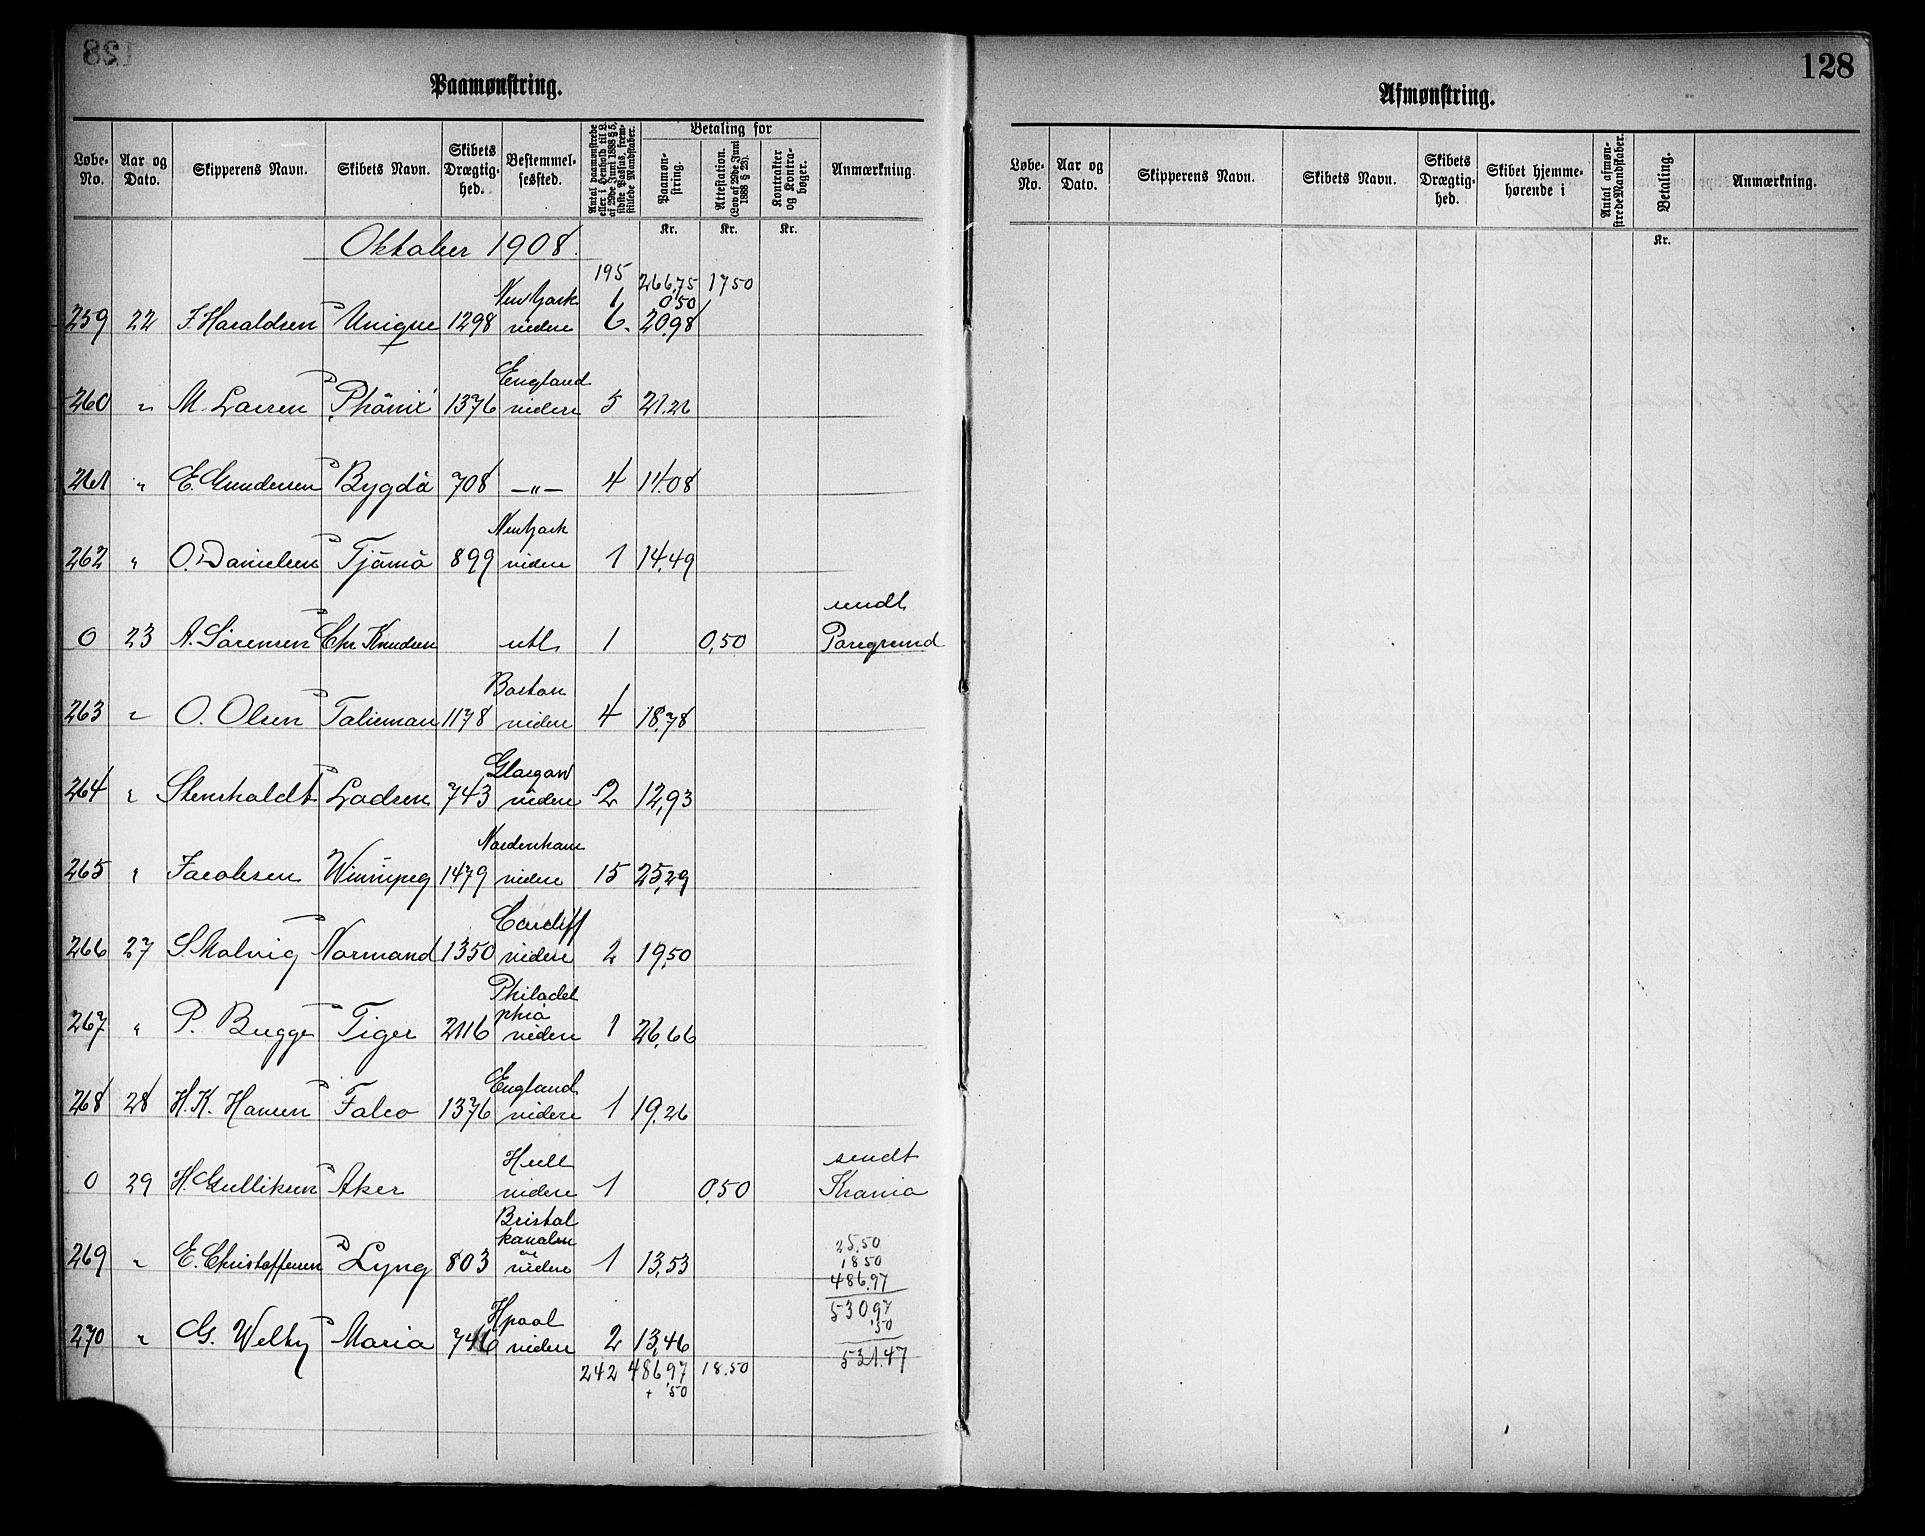 Paamønstring.
Løbe-No.
Aar og Dato.
Skipperens Navn.
Skibets Navn.
Skibets Drægtighed.
Bestemmelsessted.
Antal paamønstrede eller i Henhold til L. af 29de Juni 1888 § 5, sidste Passus, fremstillede Mandskaber.
Betaling for
Paamønstring.
Attestation. (Lov af 29de Juni 1888 § 23).
Kontrakter og Kontrabøger.
Anmærkning.
Kr. Kr. Kr.
Oktober 1908.
195 266,75 1750
New York 1 0,50
259 22 F. Haraldsen Unique 1298 videre 6. 20,98
England
260 " M. Larsen Phönix 1376 videre 5 21.26
261 " E. Gundersen Bygdö 708 —"— 4 14.08
New York
262 " O. Danielsen Tjömö 899 videre 1 14,49
sendt
0 23 A. Sörensen Chr. Knudsen utl 1 0,50 Porsgrund
Boston
263 " O. Olsen Talisman 1178 videre 4 18,78
Glasgow
264 " Stensholdt Ladsen 743 videre 2 12,93
Nordenham
265 " Jacobsen Winnipeg 1479 videre 15 25,29
Cardiff
266 27 S. Malvig Normand 1350 videre 2 19,50
Philadel
phia
267 " P. Bugge Tiger 2116 videre 1 26,66
England
268 28 H. K. Hansen Falco 1376 videre 1 19,26
Hull sendt
0 29 H. Gulliksen Aker videre 1 0,50 Krania
Bristol
kanalen 25.50
269 " E. Christoffersen Lyng 803 videre 1 13,53 18 50
486.97
530,97
Hpool '50
270 " G. Welby Maria 746 videre 2 13,46
531.47
242 486,97 18.50
+ '50
128
Afmønstring.
Løbe-No.
Aar og Dato.
Skipperens Navn.
Skibets Navn.
Skibets Drægtighed.
Skibet hjemmehørende i
Antal afmønstrede Mandskaber.
Betaling.
Anmærkning.
Kr.